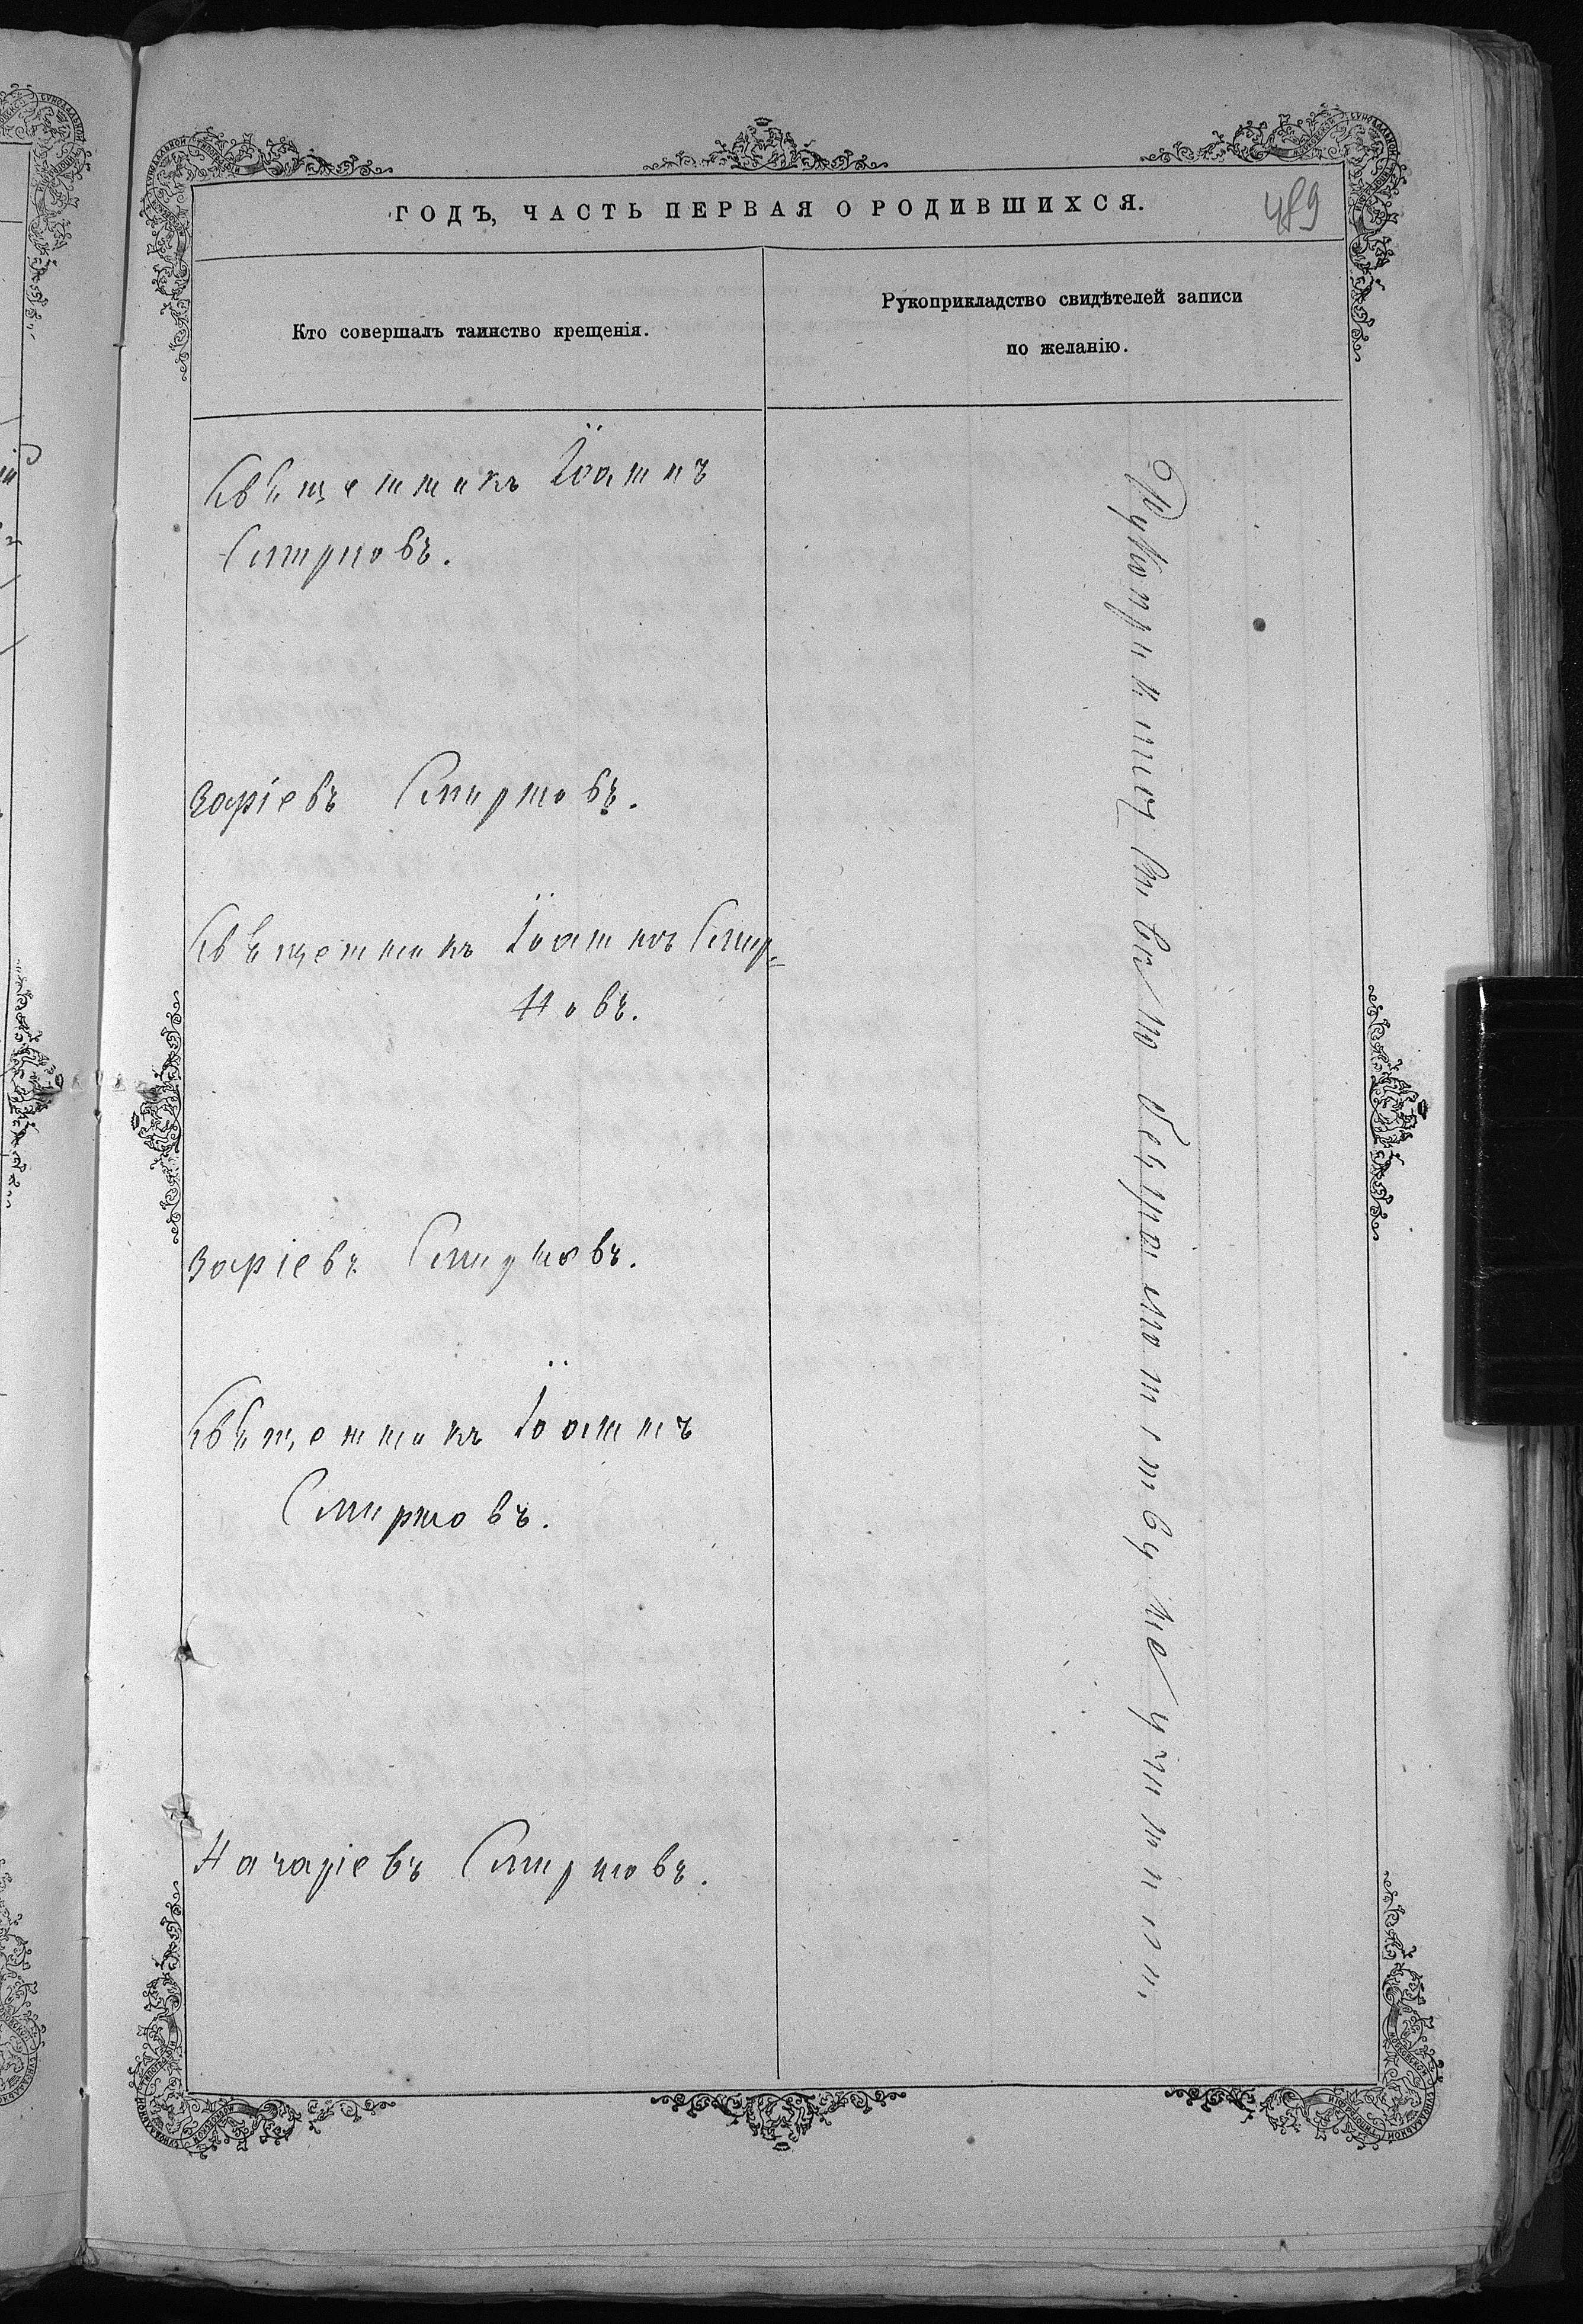 ГОДЪ, ЧАСТЬ ПЕРВАЯ О РОДИВШИХСЯ.
489
Кто совершалъ таинство крещенія.
Рукоприкладство свидѣтелей записи
по желанію.
Священникъ Іоаннъ
Смирновъ.
заріевъ Смирновъ.
Священникъ Іоаннъ Смир=
новъ.
заріевъ Смирновъ.
Священникъ Іоаннъ
Смирновъ.
Назаріевъ Смирновъ.
по безграмотству не учинили.